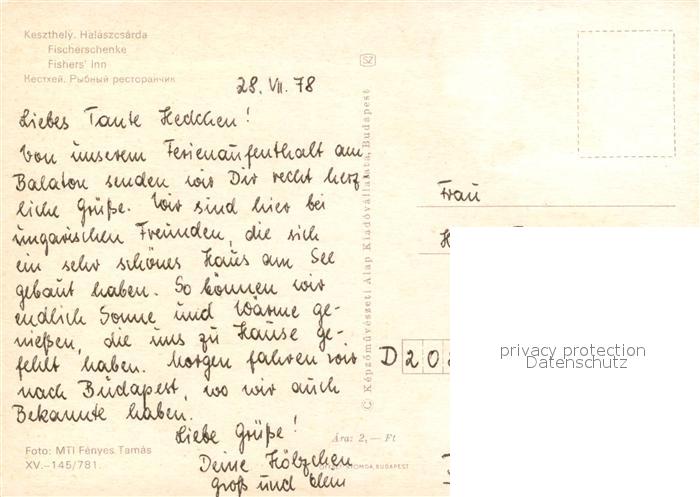 Keszthely. Halászcsárda
Fischerschenke
Fishers' Inn
Кестхей. Рыбный ресторанчик
28. VII. 78
Liebes Tante Hedchen!
Von unserem Ferienaufenthalt am
Balaton senden wir Dir recht herz
liche Grüße. Wir sind hier bei
ungarischen Freunden, die sich
ein sehr schönes Haus am See
gebaut haben. So können wir
endlich Sonne und Wärme ge-
nießen, die uns zu Hause ge-
fehlt haben. Morgen fahren wir
nach Budapest, wo wir auch
Bekannte haben.
Liebe Grüße!
Deine Hölzchen
Groß und klein
Foto: MTI Fényes Tamás
XV.–145/781.
Ára: 2,— Ft
SZ
© Képzőművészeti Alap Kiadóvállalata, Budapest
Frau
D 20
privacy protection
Datenschutz